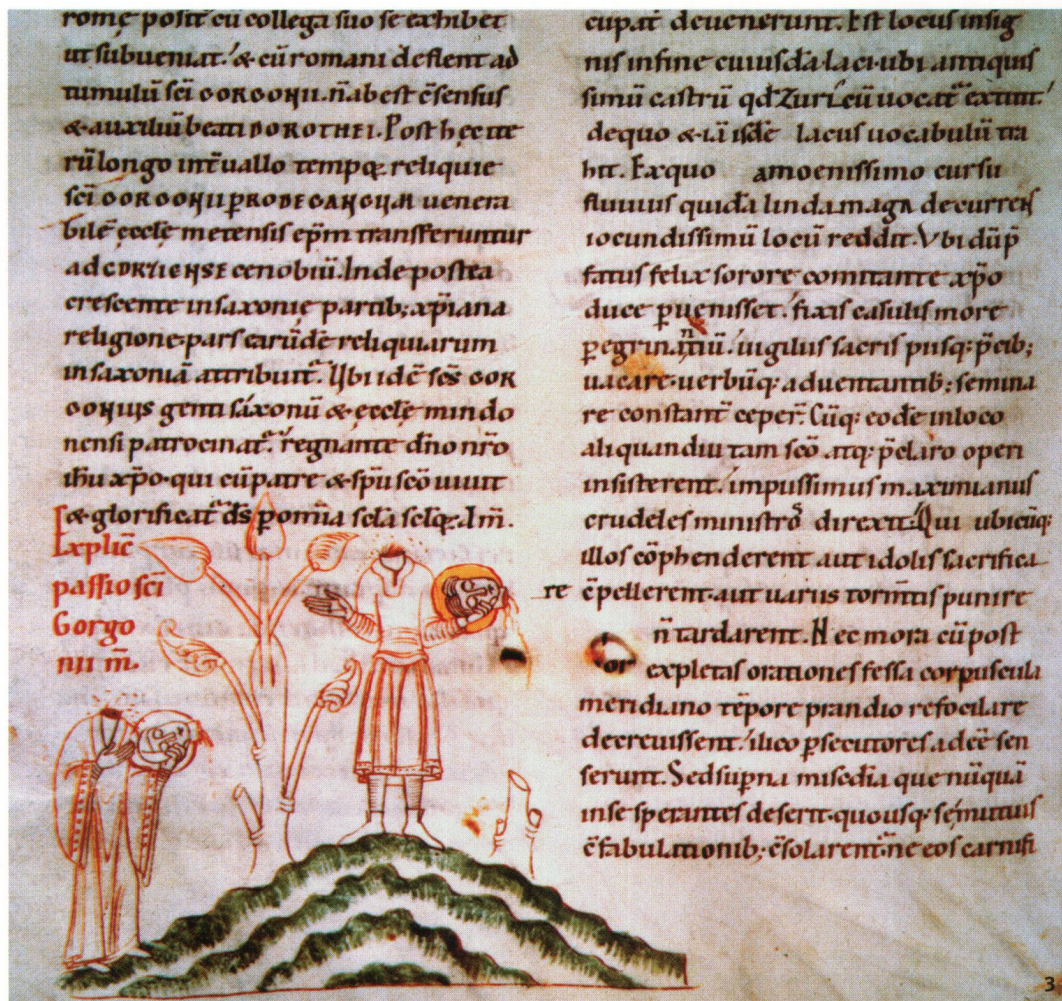 rome posit cū collega suo se exhibet
ut subueniat. & cū romani deflent ad
tumulū sc̄i GORGONII. n̄ abest c̄sensus
& auxiliū beati DOROTHEI. Post hec ite
rū longo int̄uallo tempoꝝ reliquie
sc̄i GORGONII
uenera
bilē eccłe metensis ep̄m transferuntur
ad
cenobiū. Inde postea
crescente in saxonię partib; xp̄iana
religione pars earūdē reliquiarum
in saxoniā attribuit᷒. Ubi idē sc̄s GOR
GONIUS genti saxonū & eccłe mindo
nensi patrocinat᷒. regnante dn̄o nr̄o
ihu xp̄o. qui cū patre & sp̄u sc̄o uiuit
& glorificat᷒ d̄s p om̄ia sc̄la sc̄loꝝ. Am̄.
Explic̄
passio sc̄i
Gorgo
nii m̄.
cupat deuenerunt. Est locus insig
nis in fine cuiusdā laci. ubi antiquis
simū castrū qd̄ Zuricū uocat᷒ extitit.
de quo & iā isdē lacus uocabulū tra
hit. Ex quo amoenissimo cursu
fluuius quidā lindamaga decurrens
iocundissimū locū reddit. Vbi dū p̄
fatus felix sorore comitante xp̄o
duce puenisset. fixis casulis more
peregrinantiū. uigiliis sacris piisq; p̄cib;
uacare. uerbūq; aduentantib; semina
re constant̄ ceper̄. Cūq; eodē in loco
aliquandiu tam sc̄o atq; p̄claro operi
insisterent. impiissimus maximianus
crudeles ministros direxit. Qui ubicūq;
illos cōphenderent aut idolis sacrifica
re c̄pellerent. aut uariis torm̄tis punire
n̄ tardarent. Nec mora cū post
expletas orationes fessa corpuscula
meridiano tēpore prandio refocilare
decreuissent. ilico psecutores adeē sen
serunt. Sed sup̄na mis̄c̄dia que nūquā
in se sperantes deserit. quousq; se mutuis
c̄fabulationib; c̄solarent᷒. ne eos carnifi
3